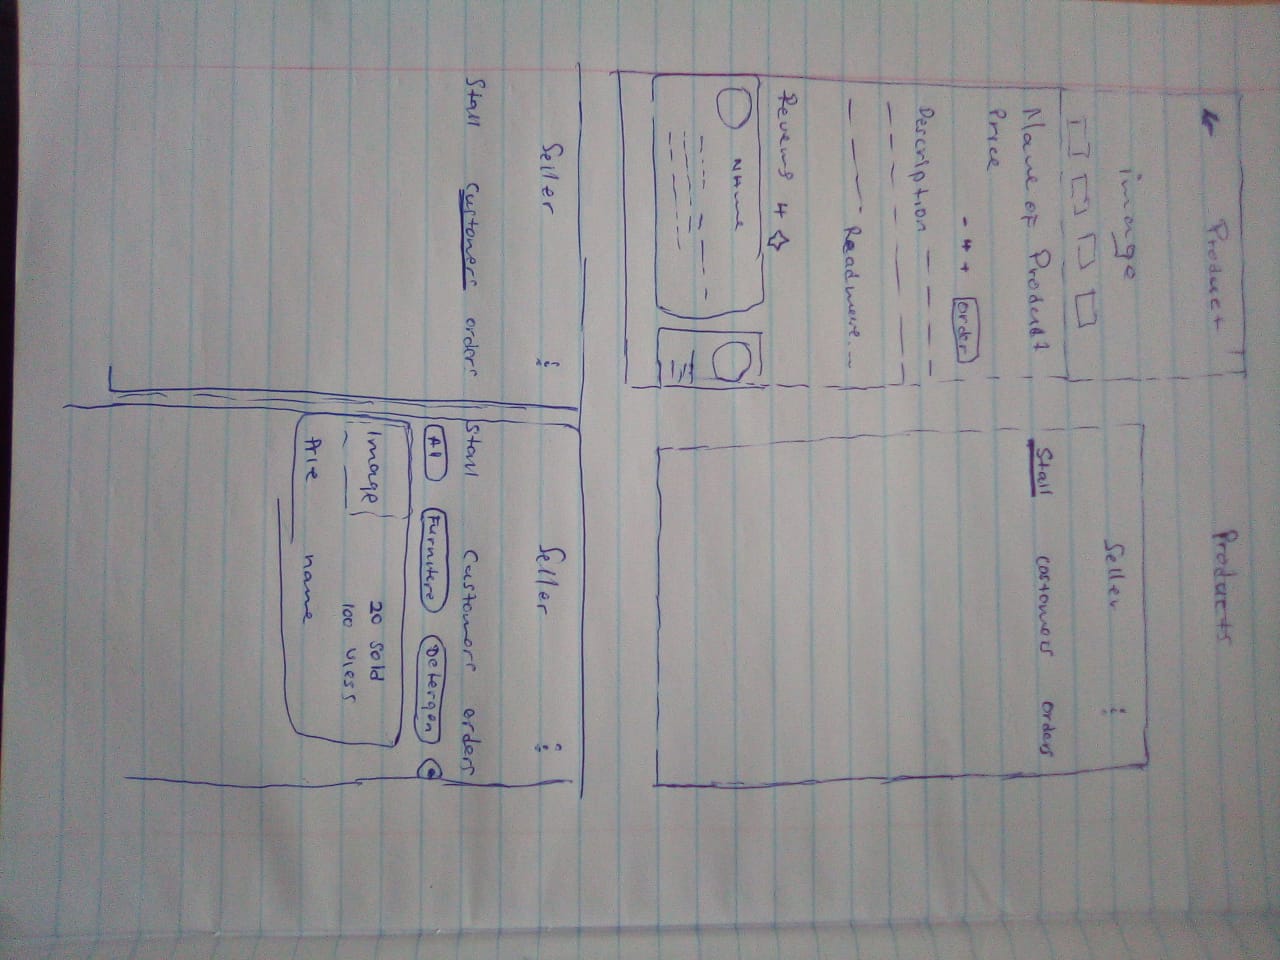 Product
image
Name of Product
Price
- 4 + order
Description
Readmore...
Reveiws 4
Name
Products
Seller
Stall customers orders
Seller
Stall customers orders
Seller
Stall Customers orders
All Furniture Detergen
image 20 sold
100 viess
Prie name